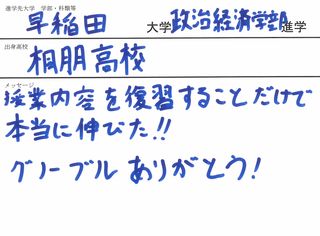 進学先大学 学部・科類等
早稲田 大学 政治経済学部 進学
出身高校
相朋高校
メッセージ
授業内容を復習することだけで
本当に伸びた!!
グノーブル ありがとう!